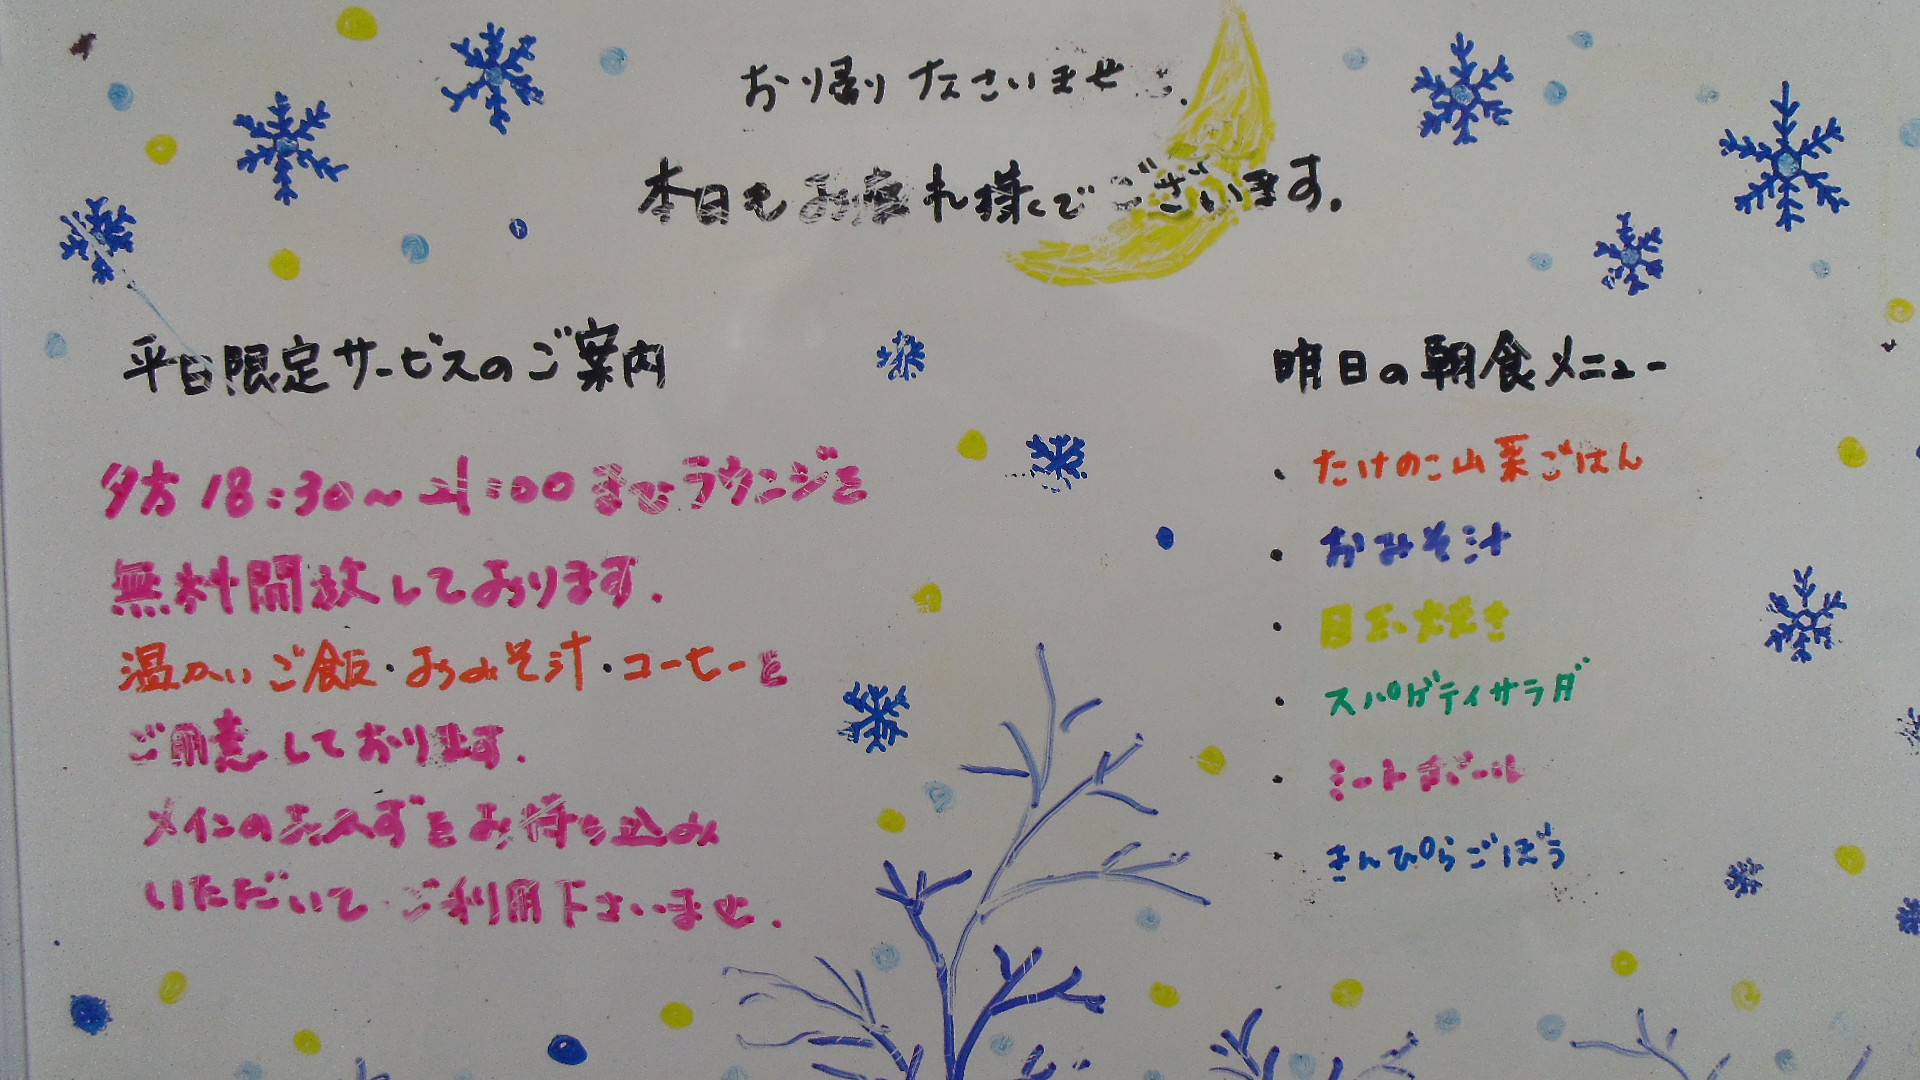 お帰りなさいませ.
本日もお疲れ様でございます.
平日限定サービスのご案内
夕方18:30～21:00までラウンジを
無料開放しております.
温かいご飯・おみそ汁・コーヒーを
ご用意しております.
メインのおかずをお持ち込み
いただいてご利用下さいませ.
明日の朝食メニュー
・たけのこ山菜ごはん
・おみそ汁
・目玉焼き
・スパゲティサラダ
・ミートボール
・きんぴらごぼう